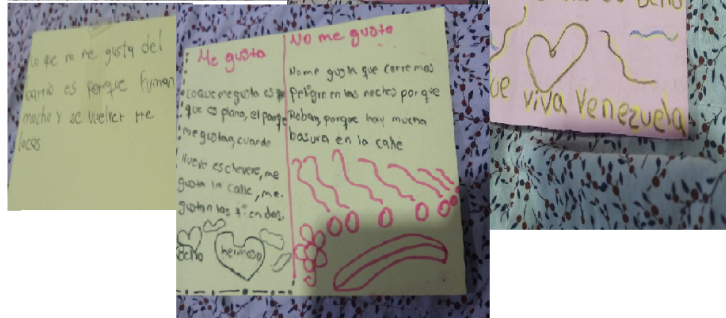 Lo que no me gusta del
barrio es porque fuman
mucho y se vuelven
locos
Me gusta
Lo que me gusta es
que es plano, el parque
me gustan, cuando
llueve es chevere, me
gusta la calle, me
gustan las tiendas
Bello
hermoso
No me gusta
No me gusta que corremos
Peligro en las noches por que
Roban, porque hay mucha
basura en la calle
Bello
ue viva Venezuela